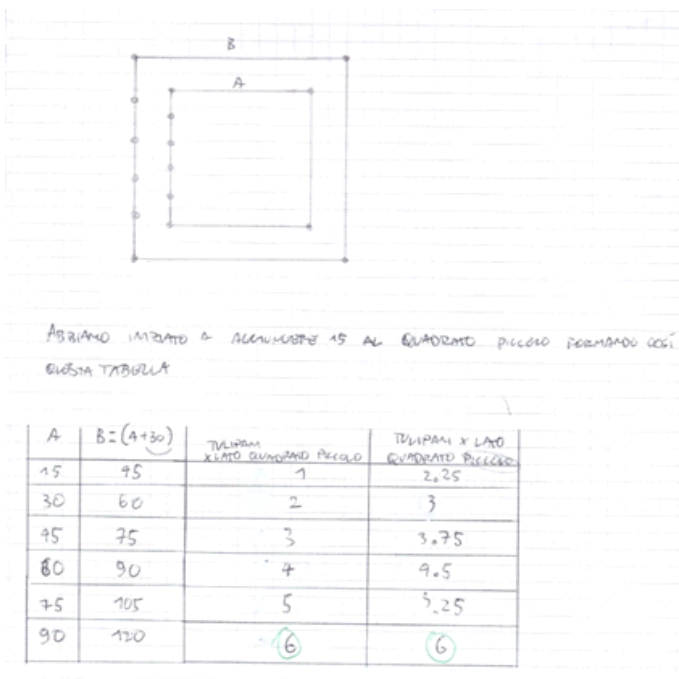 B
A
ABBIAMO INIZIATO A AGGIUNGERE 15 AL QUADRATO PICCOLO FORMANDO COSÌ
QUESTA TABELLA
A B=(A+30) TULIPANI X LATO QUADRATO PICCOLO TULIPANI X LATO QUADRATO PICCOLO
15 45 1 2.25
30 60 2 3
45 75 3 3.75
60 90 4 4.5
75 105 5 5.25
90 120 6 6